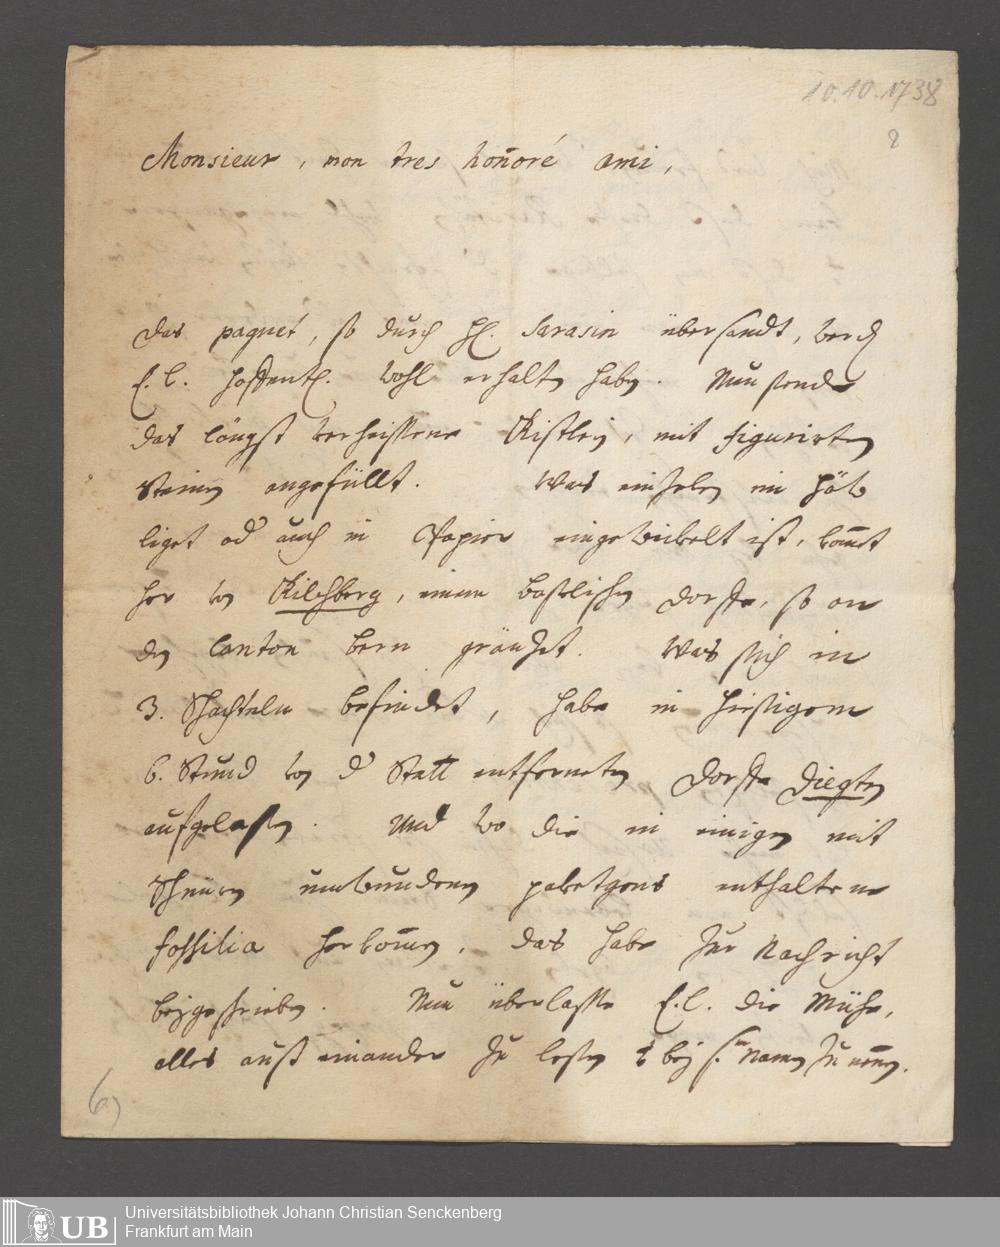 10.10.1738
8
Monsieur, mon tres hon̄oré ami,
Das paquet, so durch H. Sarasin übersandt, werdẽ
E. E. hoffentl. wohl erhalten haben. Nun sende
das längst verheissene Kistlein, mit figurirten
Steinen angefüllt. Was einzelen im Häw
liget od auch in Papier eingewickelt ist, kom̄et
her von Kilchberg, einem baslischen Dorffe, so an
den Canton Bern gräntzet. Was sich in
3. Schachteln befindet, habe in hiesigem
6. Stund von d Statt entferneten Dorffe Diegten
aufgelesen. Und wo die in einigen mit
Schnüren umwundenen paketgens enthaltene
fossilia herkom̄en, das habe zur Nachricht
beygeschrieben. Nun überlasse E. E. die Mühe,
alles auß einander zu lesen & bey s. Namen zu nen̄en.
6)
UB
Universitätsbibliothek Johann Christian Senckenberg
Frankfurt am Main